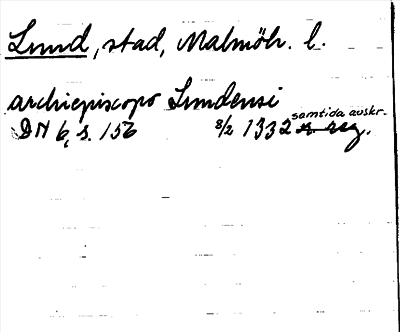 Lund, stad, Malmöh. l.
archiepiscopo Lundensi
samtida avskr.
DN 6, s. 153 8/2 1332 reg.